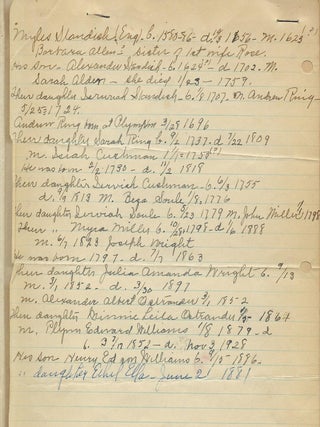 "Myles Standish (Eng) b. 1585-86 - d 10/3 1656 - m. 1623
Barbara Allen" sister of 1st wife Rose.
His son - Alexander Standish - b. 1624 - d. 1702. M.
Sarah Alden - she died 1/23 - 1759.
Their daughter Serviah Standish - b. 1707 m. Andrew Ring -
5/25 1724.
Andrew Ring born at Plympton 3/28 1696
Their daughter Sarah Ring b. 9/2 1737. d 7/22 1809
m. Isiah Cushman
He was born 2/2 1730 - d. 11/2 1818
Their daughter Serviah Cushman - b. 6/3 1755
d. 1813 M. Soule 1/8, 1776
Their daughter Serviah Soule b. 8/23 1779 M. John Miller 1798
Their " Myra Miller b. 1798 - d 1/6 1888
m. 1823 Joseph Wright
He was born 1797 - d. 7/7 1863
Their daughter Julia Amanda Wright b. 9/13
m. 3/1, 1852 - d. 3/30 1897
m. Alexander Albert Ostrander 3/1 - 1852
Their daughter Minnie Leila Ostrander 1864
m. Plynn Edward Williams 1/8 1879 - d
b. 3/17 1852 - d. Nov 3, 1928
His son Henry Edson Williams b. 1886.
" daughter Ethel Ella - June 21 1881